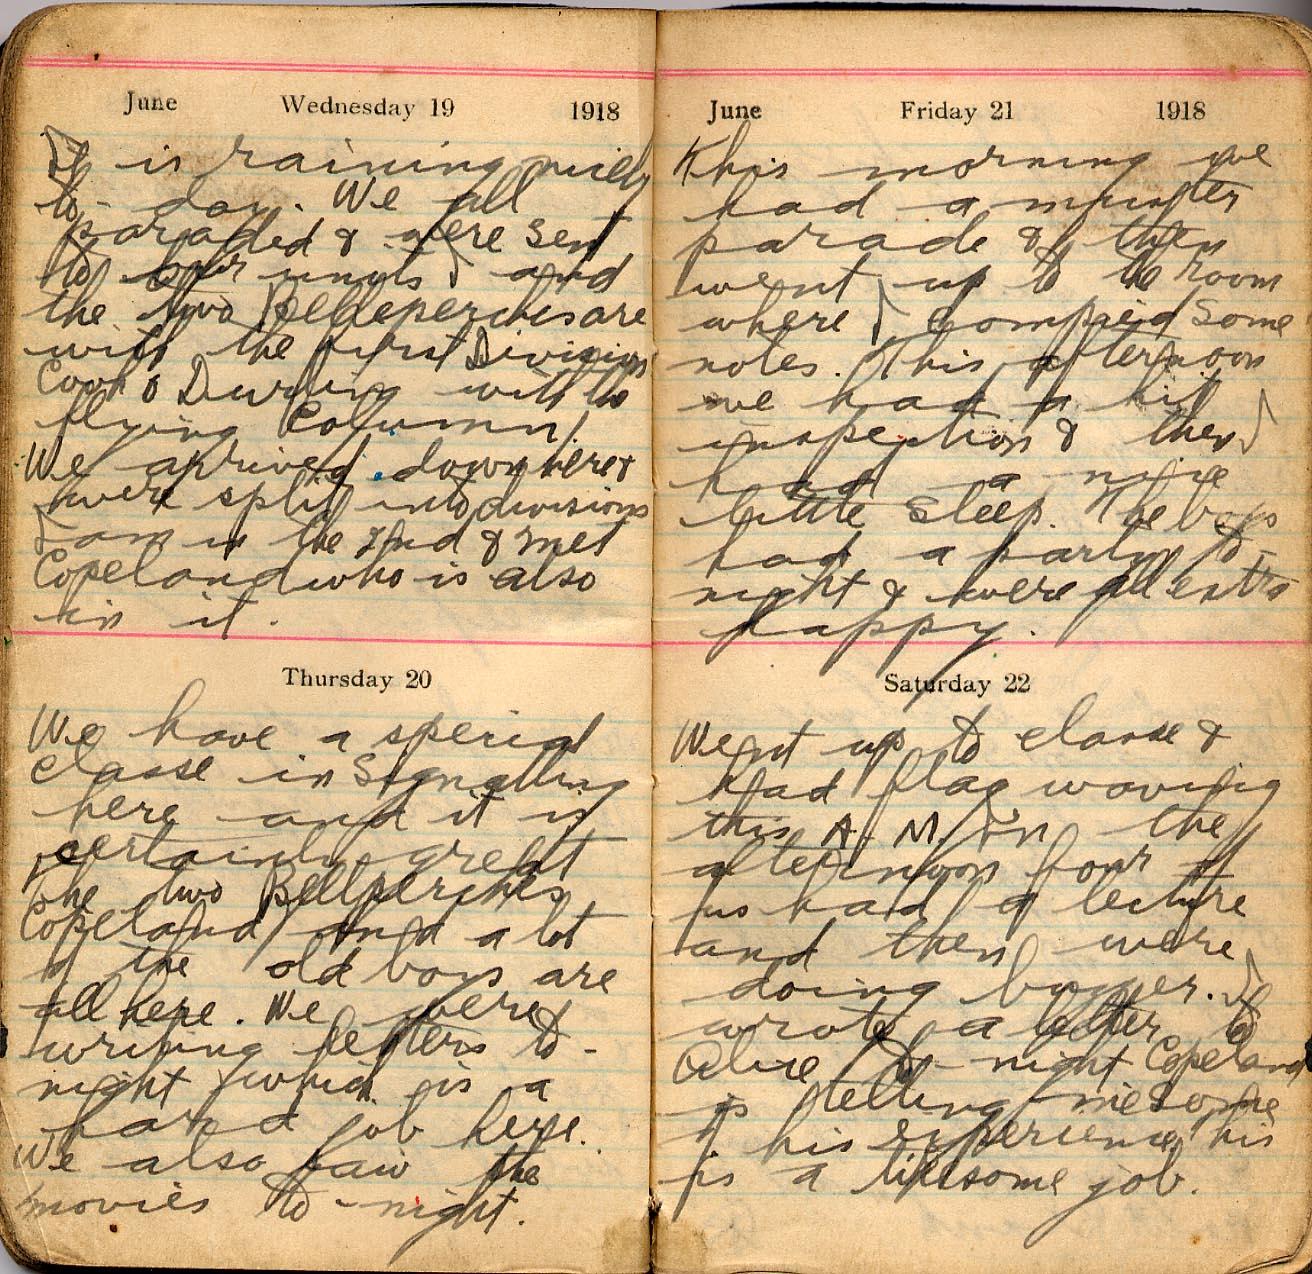 June Wednesday 19 1918
It is raining nicely
to-day. We all
paraded & were sent
to our units and
the two Belleperches are
with the first Division
Cook & Durling with the
flying Column.
We arrived down here &
were split into divisions
I am in the 2nd & met
Copeland who is also
in it.
Thursday 20
We have a special
classe in Signalling
here and it is
certainly great
the two Bellperches
Copeland and a lot
of the old boys are
all here. We were
writing letters to-
night which is a
hard job here.
We also saw the
movies to-night.
June Friday 21 1918
This morning we
had a muster
parade & then
went up to the room
where I compied some
notes. This afternoon
we had a kit
inspection & then I
had a nice
little sleep. The boys
had a party to-
night & were all extra
happy.
Saturday 22
Went up to classe &
had flag waving
this A.M. In the
afternoon four of
us had a lecture
and then were
doing buzzer. I
wrote a letter to
Alice to-night Copeland
is telling me some
of his experience this
is a lifesome job.